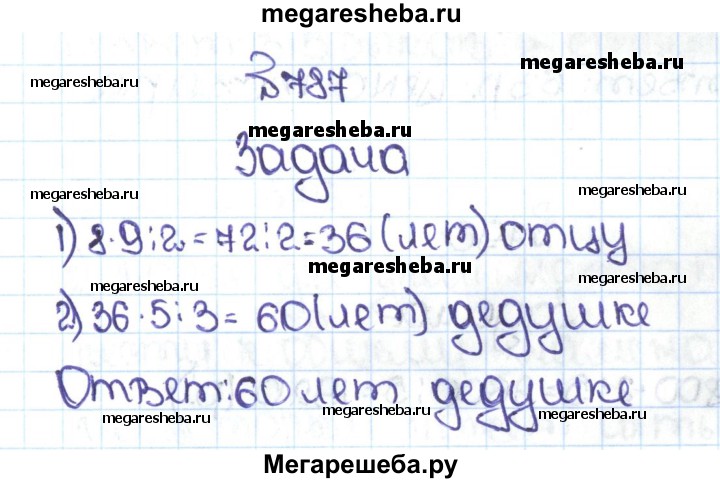 megaresheba.ru
megaresheba.ru
megaresheba.ru
№787
megaresheba.ru
Задача
megaresheba.ru
megaresheba.ru
1) 8·9:2=72:2=36 (лет) отцу
megaresheba.ru
2) 36·5:3= 60(лет) дедушке
megaresheba.ru
megaresheba.ru
Ответ:60 лет дедушке
megaresheba.ru
megaresheba.ru
megaresheba.ru
Мегарешеба.ру